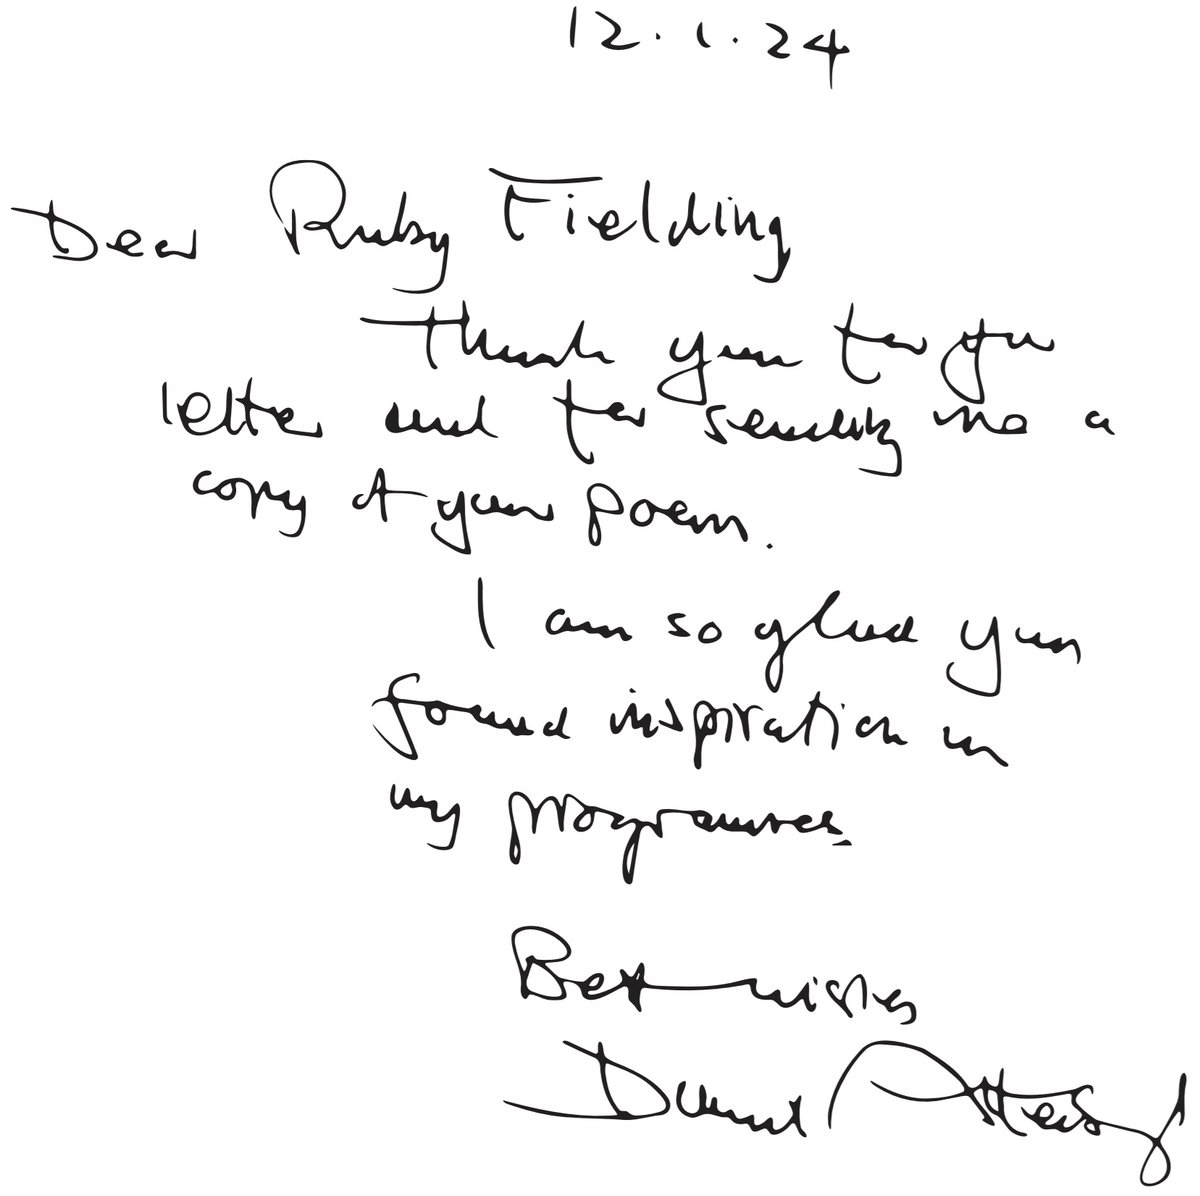 12.1.24
Dear Ruby Fielding
Thank you for your
letter and for sending me a
copy of your poem.
I am so glad you
found inspiration in
my programmes.
Best wishes
David Attenborough